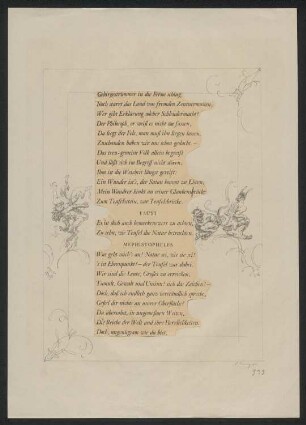 Gebirgestrümmer in die Ferne schlug.
Noch starrt das Land von fremden Zentnermassen;
Wer gibt Erklärung solcher Schleudermacht?
Der Philosoph, er weiß es nicht zu fassen,
Da liegt der Fels, man muß ihn liegen lassen,
Zuschanden haben wir uns schon gedacht. –
Das treu-gemeine Volk allein begreift
Und läßt sich im Begriff nicht stören;
Ihm ist die Weisheit längst gereift:
Ein Wunder ist's, der Satan kommt zu Ehren.
Mein Wandrer hinkt an seiner Glaubenskrücke
Zum Teufelsstein, zur Teufelsbrücke.
FAUST
Es ist doch auch bemerkenswert zu achten,
Zu sehn, wie Teufel die Natur betrachten.
MEPHISTOPHELES
Was geht mich's an! Natur sei, wie sie sei!
's ist Ehrenpunkt! – der Teufel war dabei.
Wir sind die Leute, Großes zu erreichen;
Tumult, Gewalt und Unsinn! sieh das Zeichen! –
Doch, daß ich endlich ganz verständlich spreche,
Gefiel dir nichts an unsrer Oberfläche?
Du übersahst, in ungemeßnen Weiten,
Die Reiche der Welt und ihre Herrlichkeiten;
Doch, ungenügsam wie du bist,